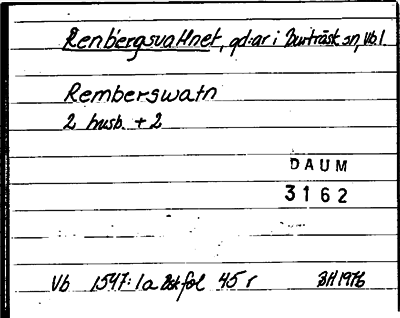 Renbergsvattnet, gd:ar i Burträsk sn, Vb l.
Remberswatn
2 husb. + 2
DAUM
3162
Vb 1547:1a Bsk fol 45 r BH 1976